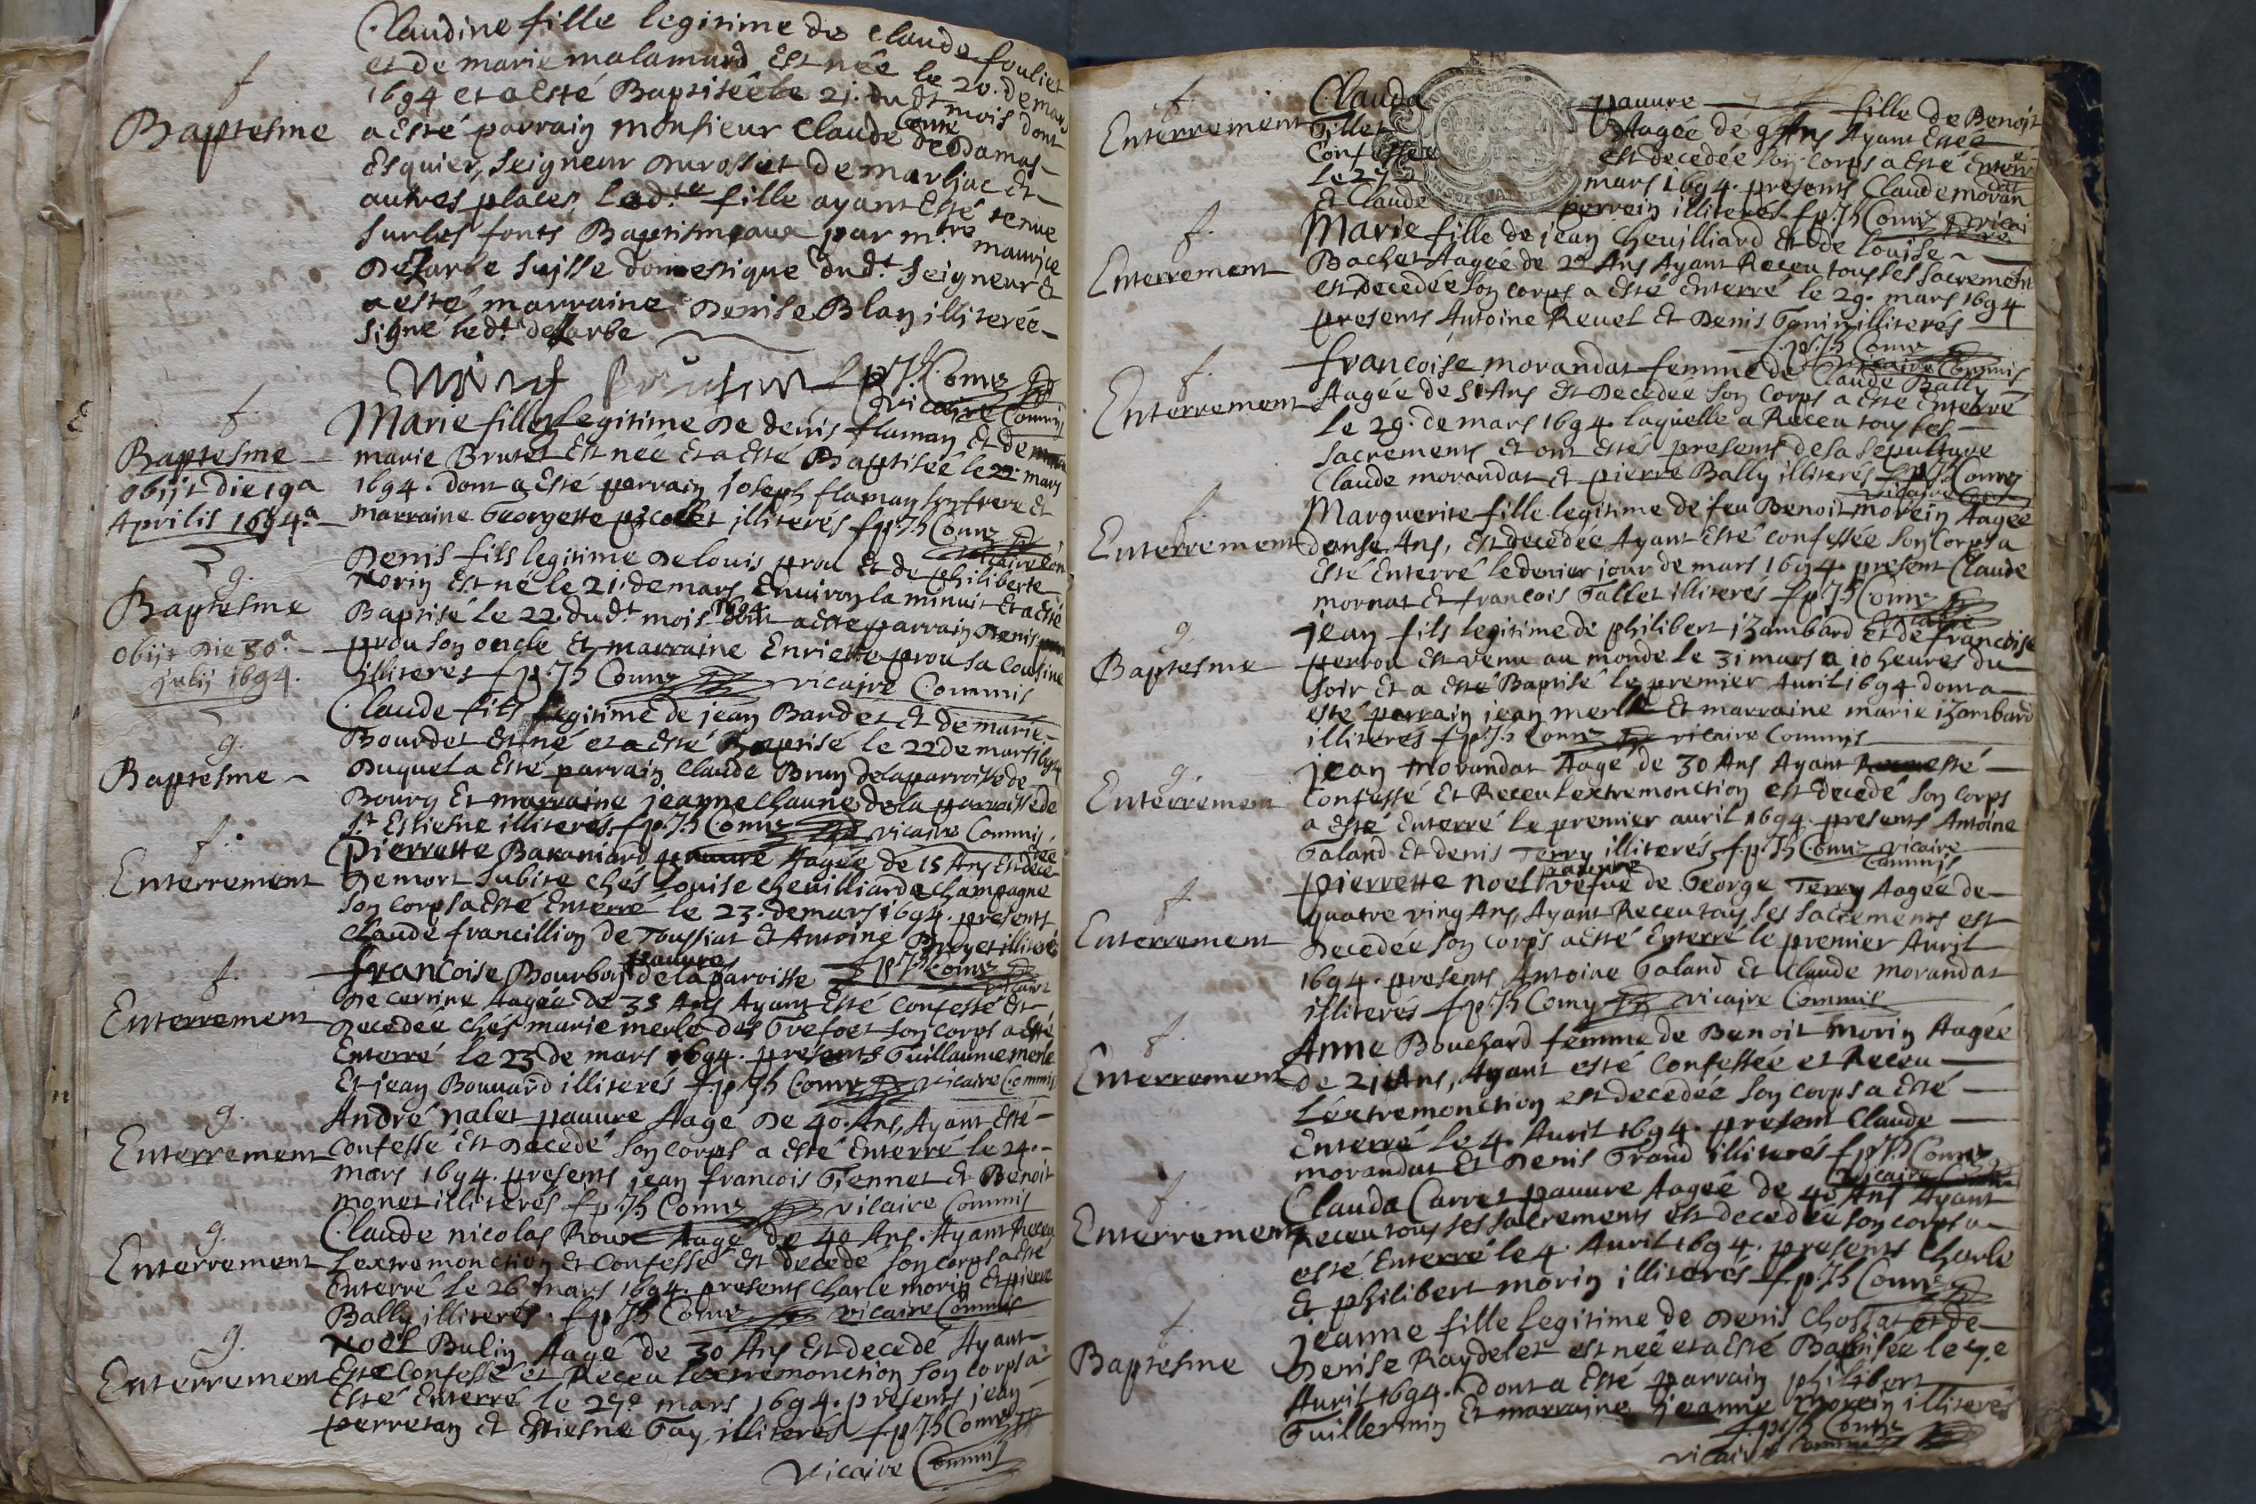 f
Baptesme
Claudine fille legitime de Claude fouliet
et de marie malamard Est née le 20. de mars
1694 et a Esté Baptisée le 21. du dt mois dont
a Esté parrain Monsieur Claude Comte de Damas
Esquier, Seigneur Durosset de marljac Et
autres places Ladte fille ayant Esté tenue
sur les fonts Baptismeaux par mre maurice
Delarbe Suisse domestique dudt Seigneur Et
a esté marraine Denise Blan illiterée
Signé ledt delarbe
f p Jh Comz
vicaire Commis
f.
Baptesme
Obijt die 19a
Aprilis 1694.a
Marie fille Legitime De denis flaman Et de
marie Brutet Est née Et a Esté Baptisée le 22 mars
1694. dont a Esté parrain joseph flaman son frere Et
marraine Georgette illiterés f p Jh Comz
g.
Baptesme
Obijt Die 30.a
julij 1694.
Denis fils legitime De louis prou Et de philiberte
Morin Est né le 21. de mars Environ la minuit Et a Esté
Baptisé le 22. dudt mois 1694. dont a Esté parrain Denis
prou son oncle Et marraine Enriette prou sa Cousine
illiteres f p. Jh Comz vicaire Commis
g.
Baptesme
Claude fils legitime de jean Bardet Et de marie
Bourdet Est né et a Esté Baptisé le 22 de mars 1694
Duquel a Esté parrain Claude Brun de la parroisse de
Bourg Et marraine jeanne Chaune de la parroisse de
St Estiesne illiteres f p. Jh Comz vicaire Commis
f.
Enterrement
Pierrette Bakaniard pauure Aagée de 15 Ans Est decedée
De mort subite chés Louise cheuilliard a Champagne
Son corps a Esté Enterré le 23. de mars 1694. presents
Claude francillion de Toussiat Et Antoine Broyet illiterés
f p Jh Comz
f.
Enterrement
francoise Bourbon pauure de la paroisse
De certine Aagée de 35 Ans Ayant Esté Confessé Est
Decedée chés marie merle des Grefoet Son corps a Esté
Enterré le 23 de mars 1694. presents Guillaume merle
Et jean Bouuard illiterés f p Jh Comz vicaire Commis
g.
Enterrement
André nalet pauure Aagé De 40. Ans, Ayant Esté
Confessé Est Decedé Son Corps a Esté Enterré le 24.
mars 1694. presents jean francois Giennet Et Benoit
monet illiterés f p Jh Comz vicaire Commis
g.
Enterrement
Claude nicolas Roux Aagé de 40 Ans. Ayant Receu
Lextremonction Et Confessé Est decedé Son corps a Esté
Enterré le 26 mars 1694. presents Charle morin Et pierre
Bally illiterés. f p Jh Comz vicaire Commis
g.
Enterrement
Noël Bulin Aagé de 30 Ans Est decedé Ayant
Esté Confessé et Receu Lextremonction Son corps a
Esté Enterré le 27e mars 1694. presents jean
perretan Et Estiesne Gay illiterés f p Jh Comz
vicaire Commis
f.
Enterrement
Clauda pauure fille de Benoit
Gillet Aagée de 9 Ans Ayant Estée
Confessée est decedée Son Corps a Esté Enterré
Le 27 mars 1694. presents Claude morandat
Et Claude perrein illiterés f p. Jh Comz vicai
f.
Enterrement
Marie fille de jean Cheuilliard Et de Louise
Bachet Aagée de 22 Ans Ayant Receu tous les Sacrements
est decedée Son corps a Esté Enterré le 29. mars 1694
presents Antoine Reuel Et Denis Gonin illiterés
f. p. Jh Comz
vicaire Commis
f.
Enterrement
francoise morandat femme de Claude Bally
Aagée de 51 Ans Est Decedée Son Corps a Esté Enterré
Le 29. de mars 1694. laquelle a Receu tous les
Sacrements Et ont Estés presents de sa Sepulture
Claude morandat Et pierre Bally illiterés f. p. Jh Comz
f.
Enterrement
Marguerite fille legitime de feu Benoit morein Aagée
donse Ans, Est decedée Ayant Esté confessée Son Corps a
Esté Enterré le denier jour de mars 1694. present Claude
mornat Et francois Gallet illiterés f p Jh Comz
vicaire
g.
Baptesme
jean fils legitime de philibert izambard Et de francoise
perrou Est venu au monde le 31 mars a 10 heures du
soir Et a esté Baptisé le premier Auril 1694 dont a
esté parrain jean merle Et marraine marie izambard
illiterés f p. Jh Comz vicaire Commis
g.
Enterrement
jean morandat Aagé de 30 Ans Ayant esté
Confessé Et Receu Lextremonction est decedé Son corps
a Esté Enterré le premier auril 1694. presents Antoine
Galand Et denis Terry illiterés f. p. Jh Comz vicaire
Commis
f.
Enterrement
pierrette noel pauure vefue de George Terry Aagée de
quatre ving Ans, Ayant Receu tous Les Sacrements est
Decedée Son Corps a Esté Enterré le premier Auril
1694. presents Antoine Galand Et Claude morandat
illiterés f p Jh Comz vicaire Commis
f.
Enterrement
Anne Bouchard femme de Benoit morin Aagée
de 21 Ans, Ayant esté Confessée et Receu
Lextremonction est decedée Son Corps a Esté
Enterré Le 4. Auril 1694. present Claude
morandat Et Denis Grand illiterés f p Jh Comz
vicaire
f.
Enterrement
Clauda Carret pauure Aagée de 40 Ans Ayant
Receu tous ses sacrements est decedée Son corps a
esté Enterré le 4. Auril 1694. presents Charle
Et philibert morin illiterés f p. Jh Comz
f.
Baptesme
jeanne fille Legitime de Denis Chossat et de
Denise Raydelet est née et a Esté Baptisée le 7.e
Auril 1694. dont a Esté parrain philibert
Guillermin Et marraine jeanne morein illiterés
f. p. Jh Comz
vicaire Commis